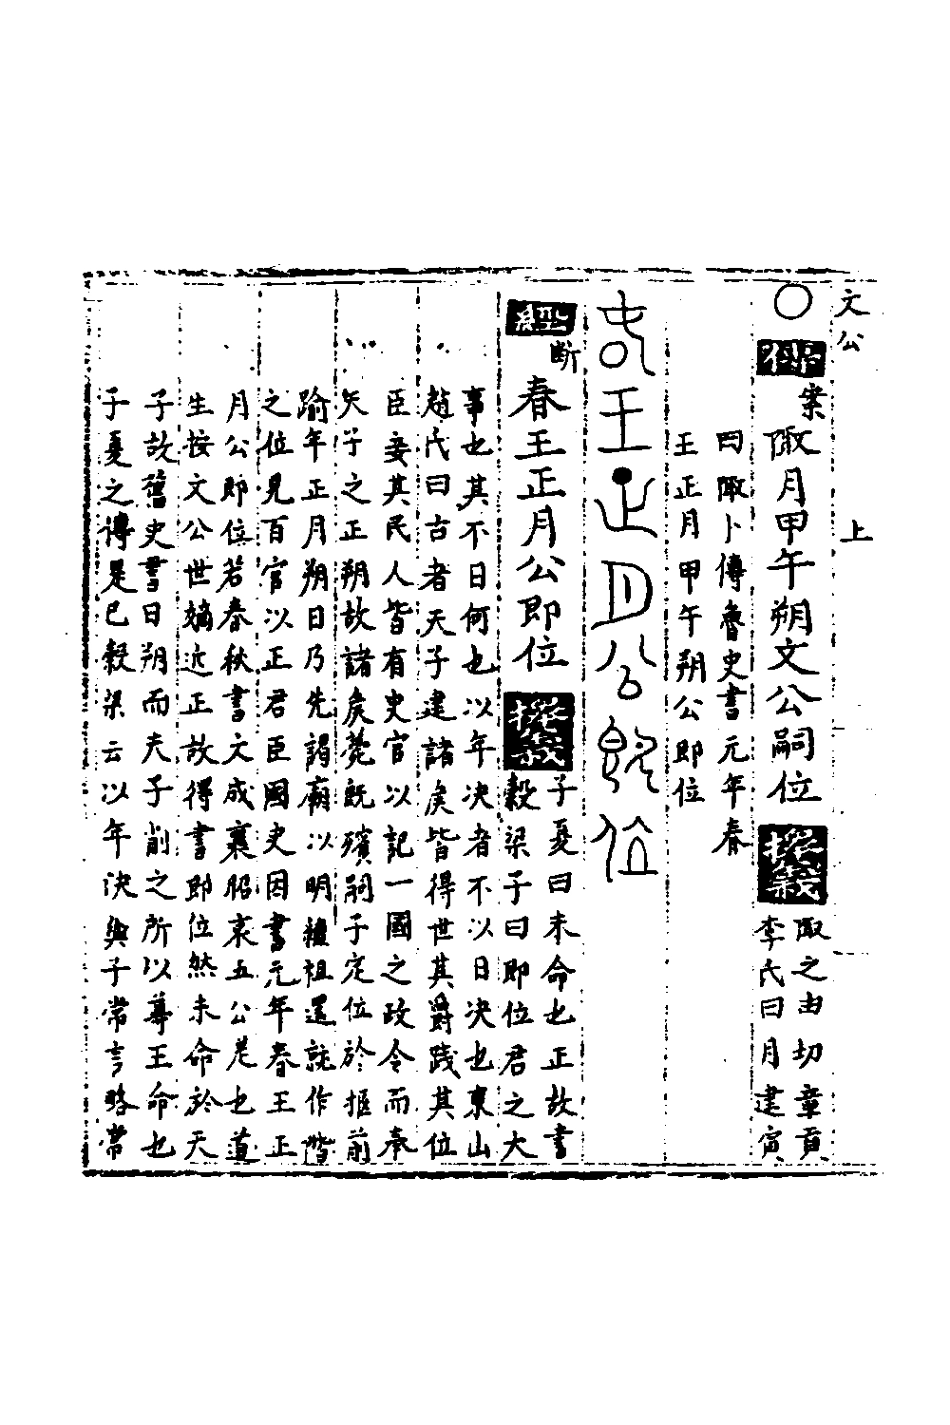 文公　上
○案陬月甲午朔文公嗣位
陬之由切章貢
李氏曰月建寅
曰陬卜傳魯史書元年春
王正月甲午朔公即位
春王正月公即位
經斷春王正月公即位
子夏曰未命也正故書
穀梁子曰即位君之大
事也其不日何也以年决者不以日决也東山
趙氏曰古者天子建諸矦皆得世其爵踐其位
臣妾其民人皆有史官以記一國之政令而奉
天子之正朔故諸矦薨既殯嗣子定位於柩前
踰年正月朔日乃先謁廟以明繼祖還就作階
之位見百官以正君臣國史因書元年春王正
月公即位若春秋書文成襄昭哀五公是也道
生按文公世嫡近正故得書即位然未命於天
子故舊史書日朔而夫子削之所以尊王命也
子夏之傳是已穀梁云以年决與子常言略常